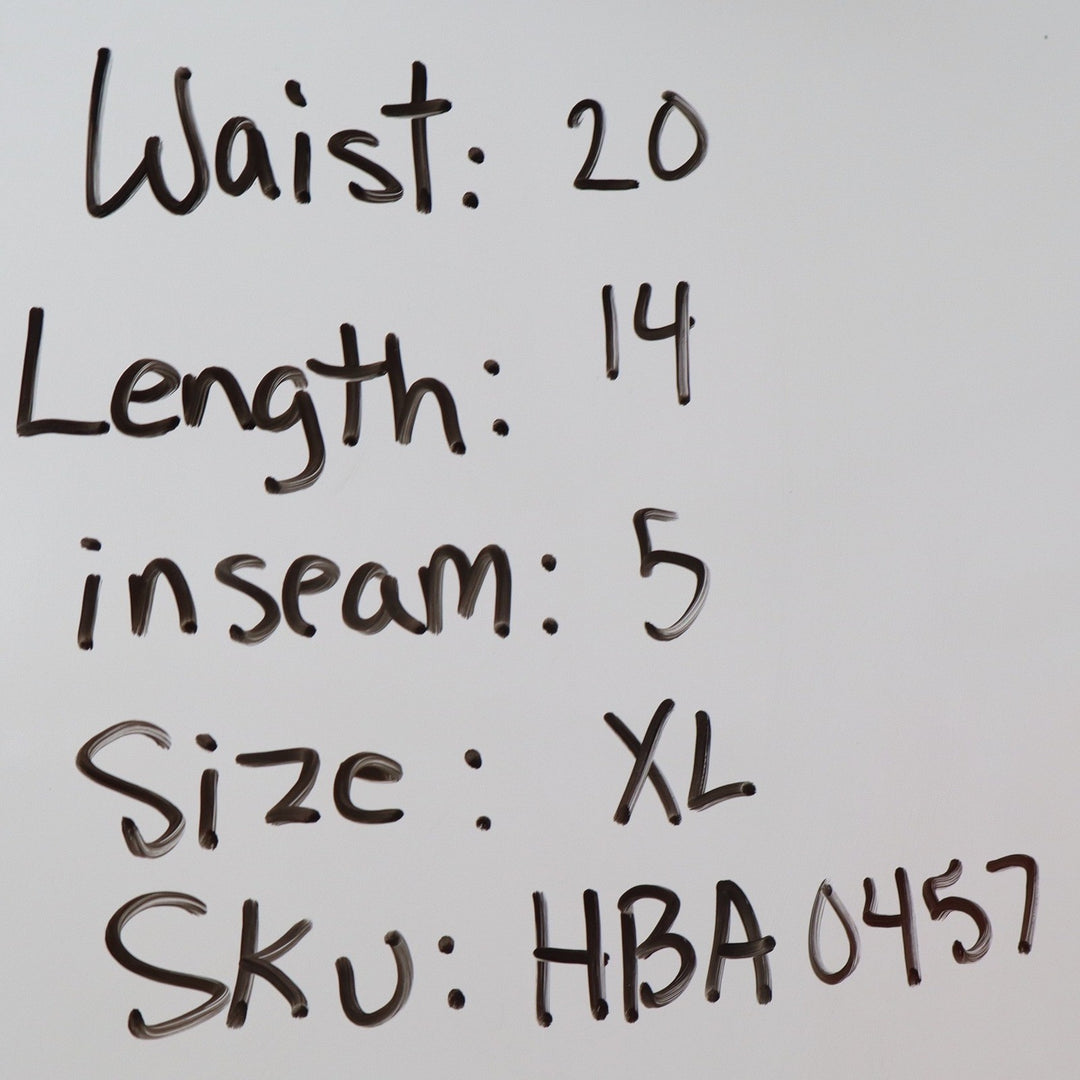 Waist: 20
Length: 14
inseam: 5
Size: XL
SKU: HBA 0457